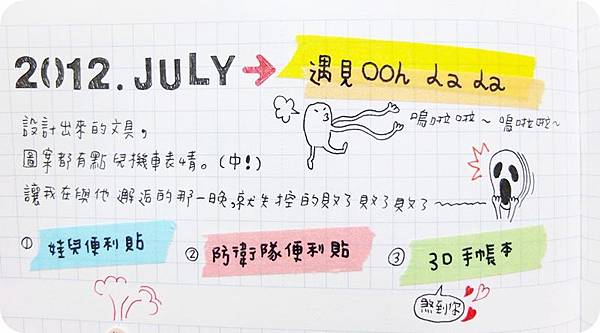 2012.JULY → 遇見 OOh La La
設計出來的文具,
嗚啦啦~嗚啦啦~
圖案都有點兒機車表情。(中!)
讓我在與他邂逅的那一晚,就失控的敗了敗了敗了~~~~
① 娃兒便利貼
② 防衛隊便利貼
③ 3D手帳本
煞到你